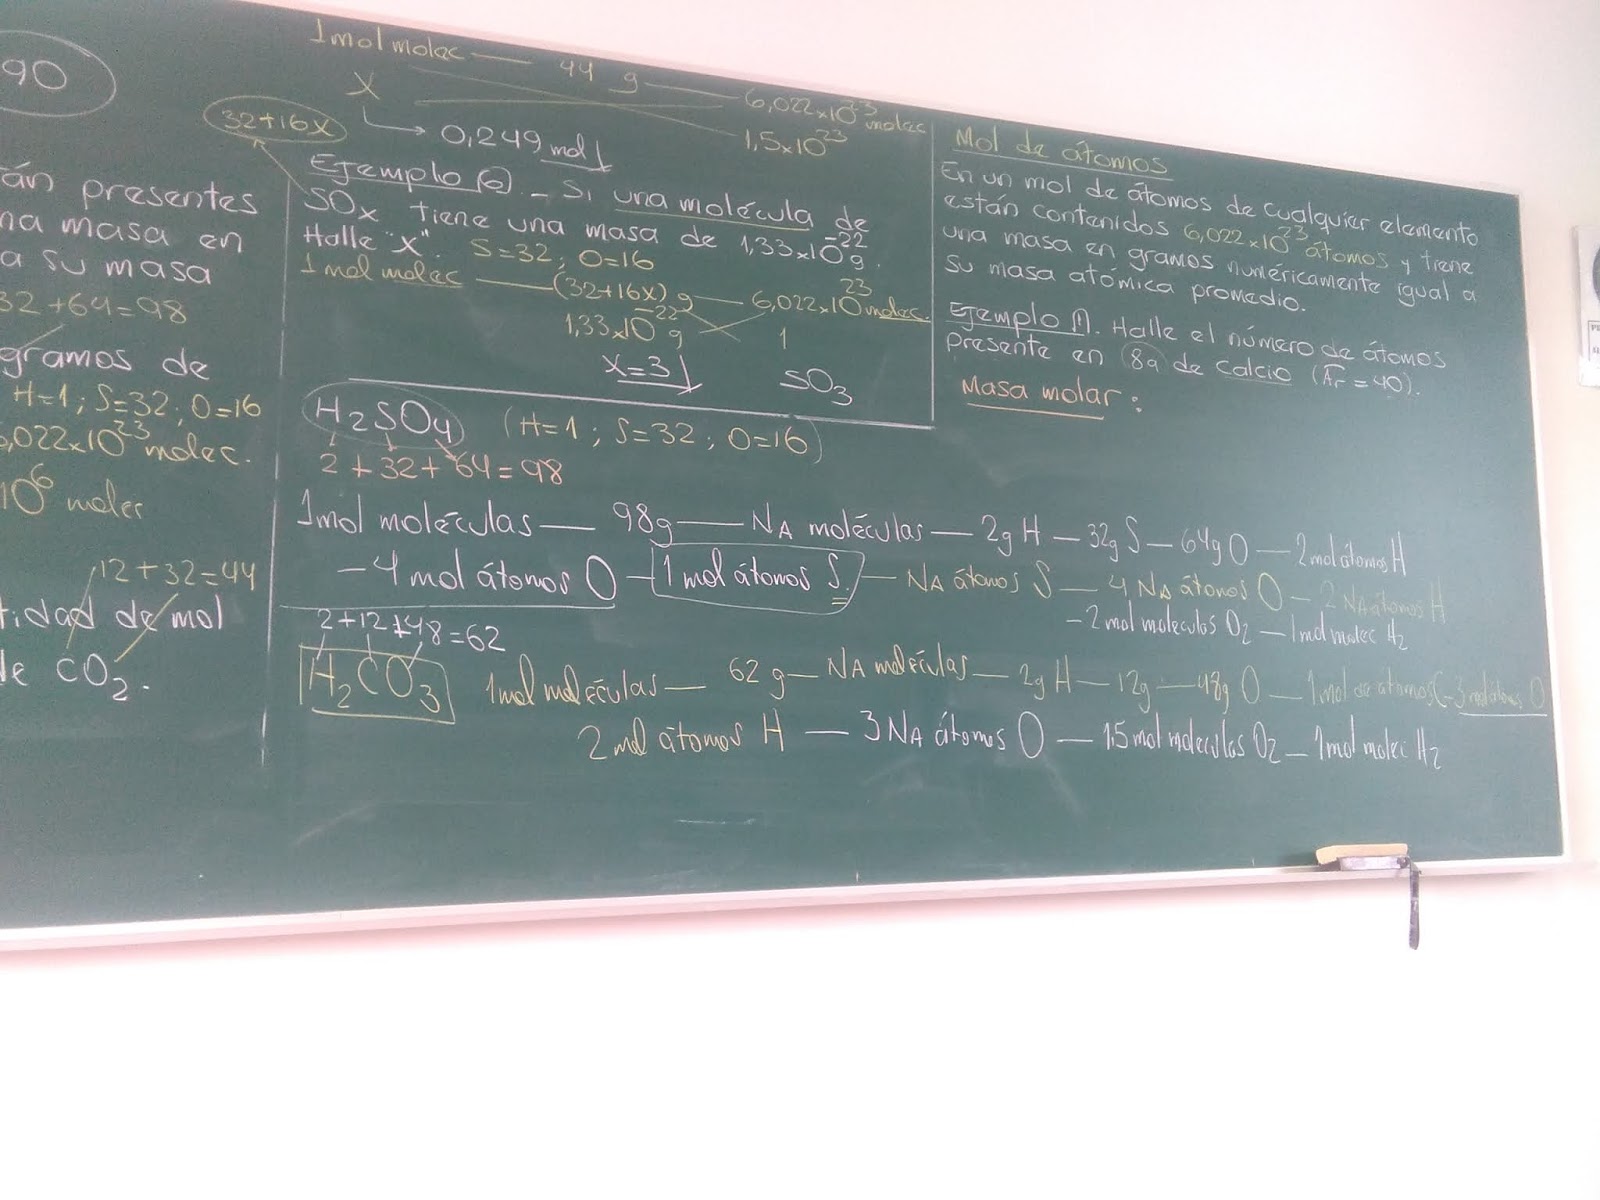 90
án presentes
na masa en
a su masa
32+64=98
gramos de
H=1; S=32; O=16
,022x10²³ molec.
10⁶ molec
12+32=44
tidad de mol
de CO₂.
1mol molec — 44 g — 6,022x10²³ molec
X 1,5x10²³
0,249 mol
32+16x
Ejemplo 10.- Si una molécula de
SOx tiene una masa de 1,33x10⁻²² g.
Halle "x". S=32; O=16
1mol molec — (32+16x) g — 6,022x10²³ molec.
1,33x10⁻²² g 1
X=3 SO₃
H₂SO₄ (H=1; S=32; O=16)
2+32+64=98
1mol moléculas — 98g — NA moléculas — 2g H — 32g S — 64g O — 2mol átomos H
- 4 mol átomos O - 1 mol átomos S. - NA átomos S - 4 NA átomos O - 2 NA átomos H
- 2mol moleculas O₂ - 1mol molec H₂
2+12+48=62
H₂CO₃ 1mol moléculas — 62 g — NA moléculas — 2g H — 12g — 48g O — 1mol de atomos C - 3 mol átomos O
2 mol átomos H — 3 NA átomos O — 1,5 mol moleculas O₂ — 1mol molec H₂
Mol de átomos
En un mol de átomos de cualquier elemento
están contenidos 6,022x10²³ átomos y tiene
una masa en gramos numéricamente igual a
su masa atómica promedio.
Ejemplo 11. Halle el número de átomos
presente en 8g de calcio (Ar = 40).
Masa molar: